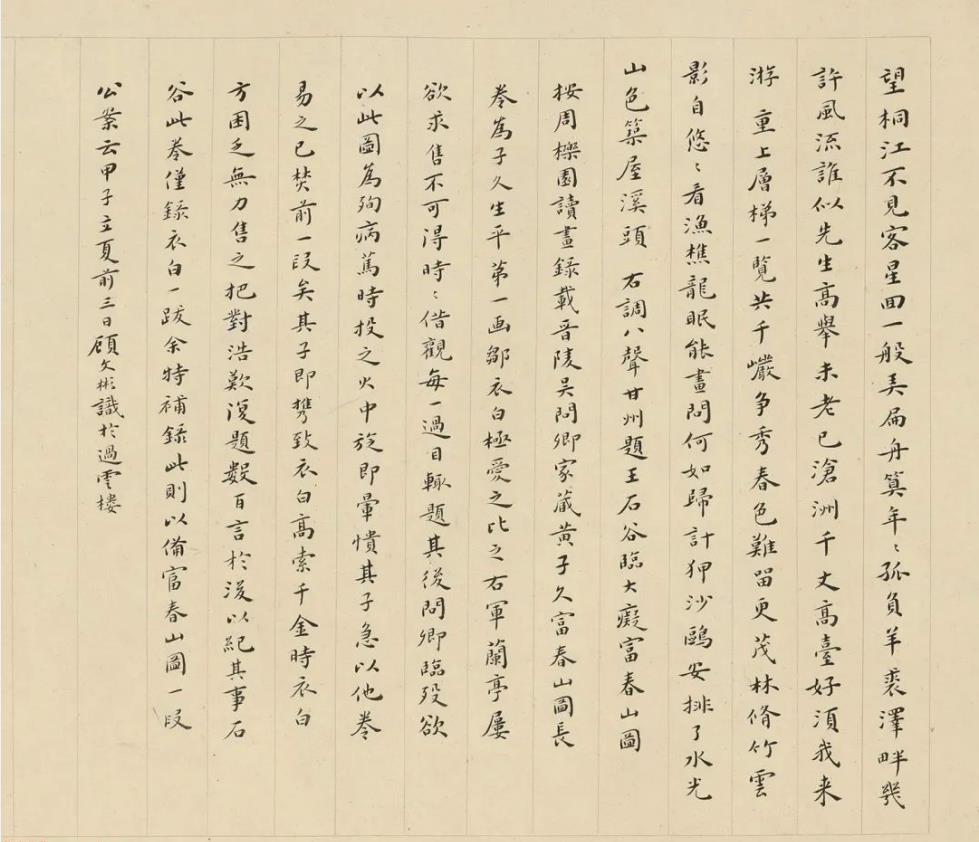 望桐江不見客星回一般美扁舟算年〻孤負羊裘澤畔幾
許風流誰似先生高舉未老已滄洲千丈高臺好須我来
游　重上層梯一覽共千巖争秀春色難留更茂林脩竹雲
影自悠〻看漁樵龍眠能畫問何如歸計狎沙鷗安排了水光
山色築屋溪頭　右調八聲甘州題王石谷臨大癡富春山圖
按周櫟園讀畫録載晋陵吴問卿家蔵黄子久富春山圖長
卷為子久生平第一画鄒衣白極愛之比之右軍蘭亭屢
欲求售不可得時〻借觀每一過目輒題其後問卿臨殁欲
以此圖為殉病篤時投之火中旋即暈憒其子急以他卷
易之已焚前一段矣其子即携致衣白高索千金時衣白
方困乏無力售之把對浩歎復題數百言於後以紀其事石
谷此卷僅録衣白一跋余特補録此則以備富春山圖一段
公案云甲子立夏前三日顧文彬識於過雲樓